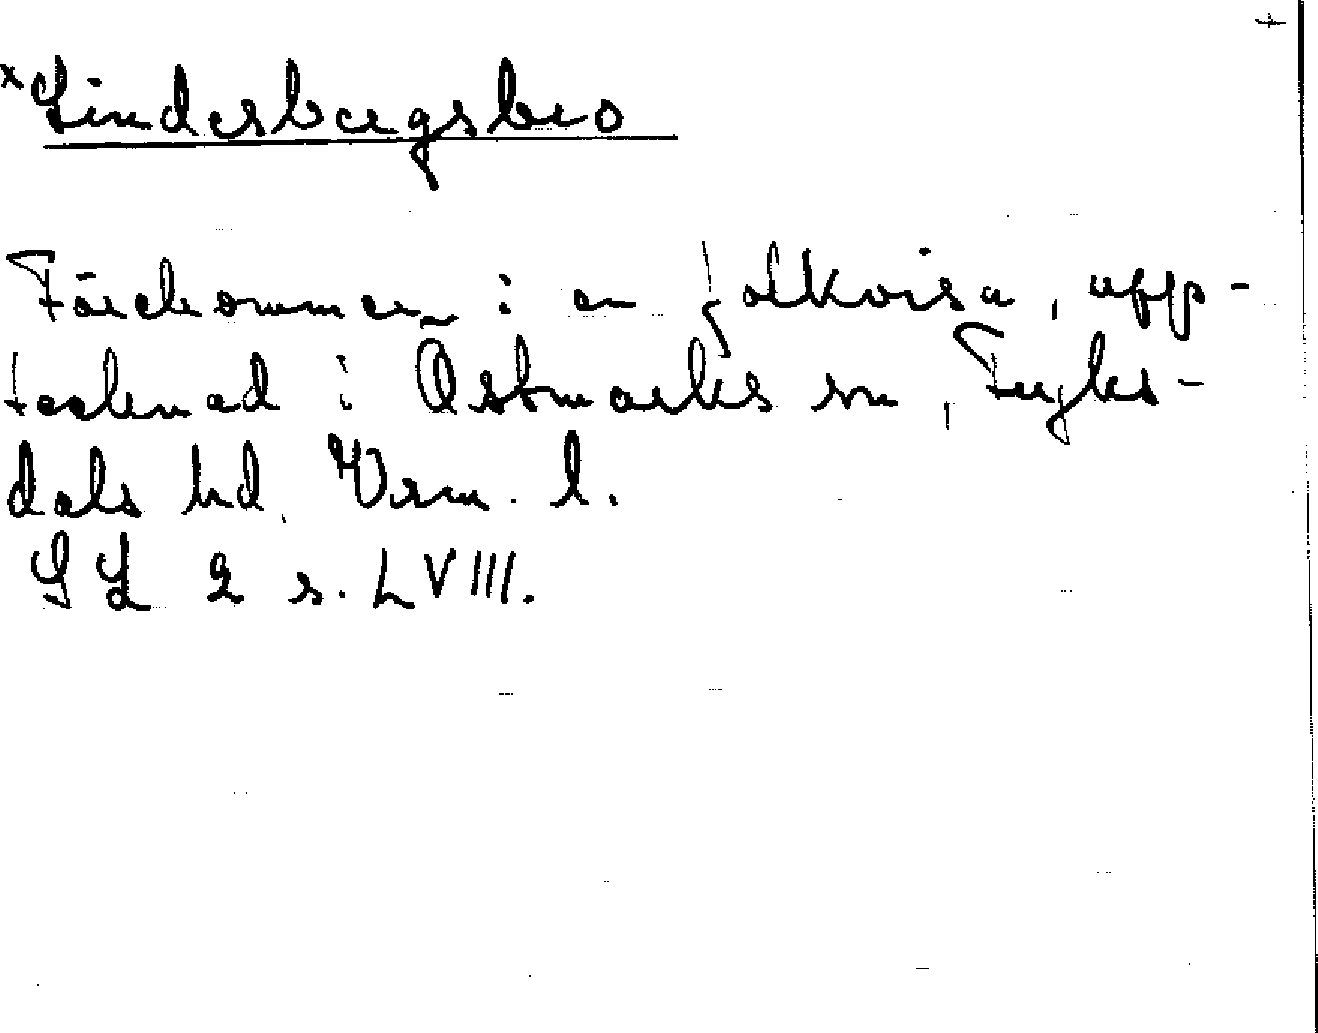 +
×Lindersbergsbro
Förekommer i en folkvisa, upp-
tecknad i Östmarks sn, Fryks-
dals hd, Vrm. l.
SL 2 s. LVIII.